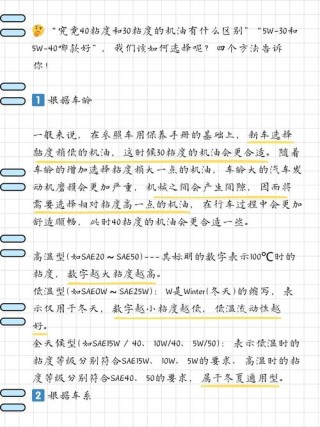 🤔“究竟40粘度和30粘度的机油有什么区别”“5W-30和
5W-40哪款好”，我们该如何选择呢？四个方法告诉
你！
1 根据车龄
一般来说，在参照车用保养手册的基础上，新车选择
黏度稍低的机油，这时候30粘度的机油会更合适。随着
车龄的增加选择粘度稍大一点的机油，车龄大的汽车发
动机磨损会更加严重，机械之间会产生间隙，因而将
需要选择相对粘度高一点的机油，在行车过程中会更加
舒适顺畅，此时40粘度的机油会更合适一些。
高温型(如SAE20～SAE50)---其标明的数字表示100℃时的
粘度，数字越大粘度越高。
低温型(如SAE0W～SAE25W)：W是Winter(冬天)的缩写，表
示仅用于冬天，数字越小粘度越低，低温流动性越
好。
全天候型(如SAE15W/40、10W/40、5W/50)：表示低温时的
粘度等级分别符合SAE15W、10W、5W的要求、高温时的粘
度等级分别符合SAE40、50的要求，属于冬夏通用型。
2 根据车系